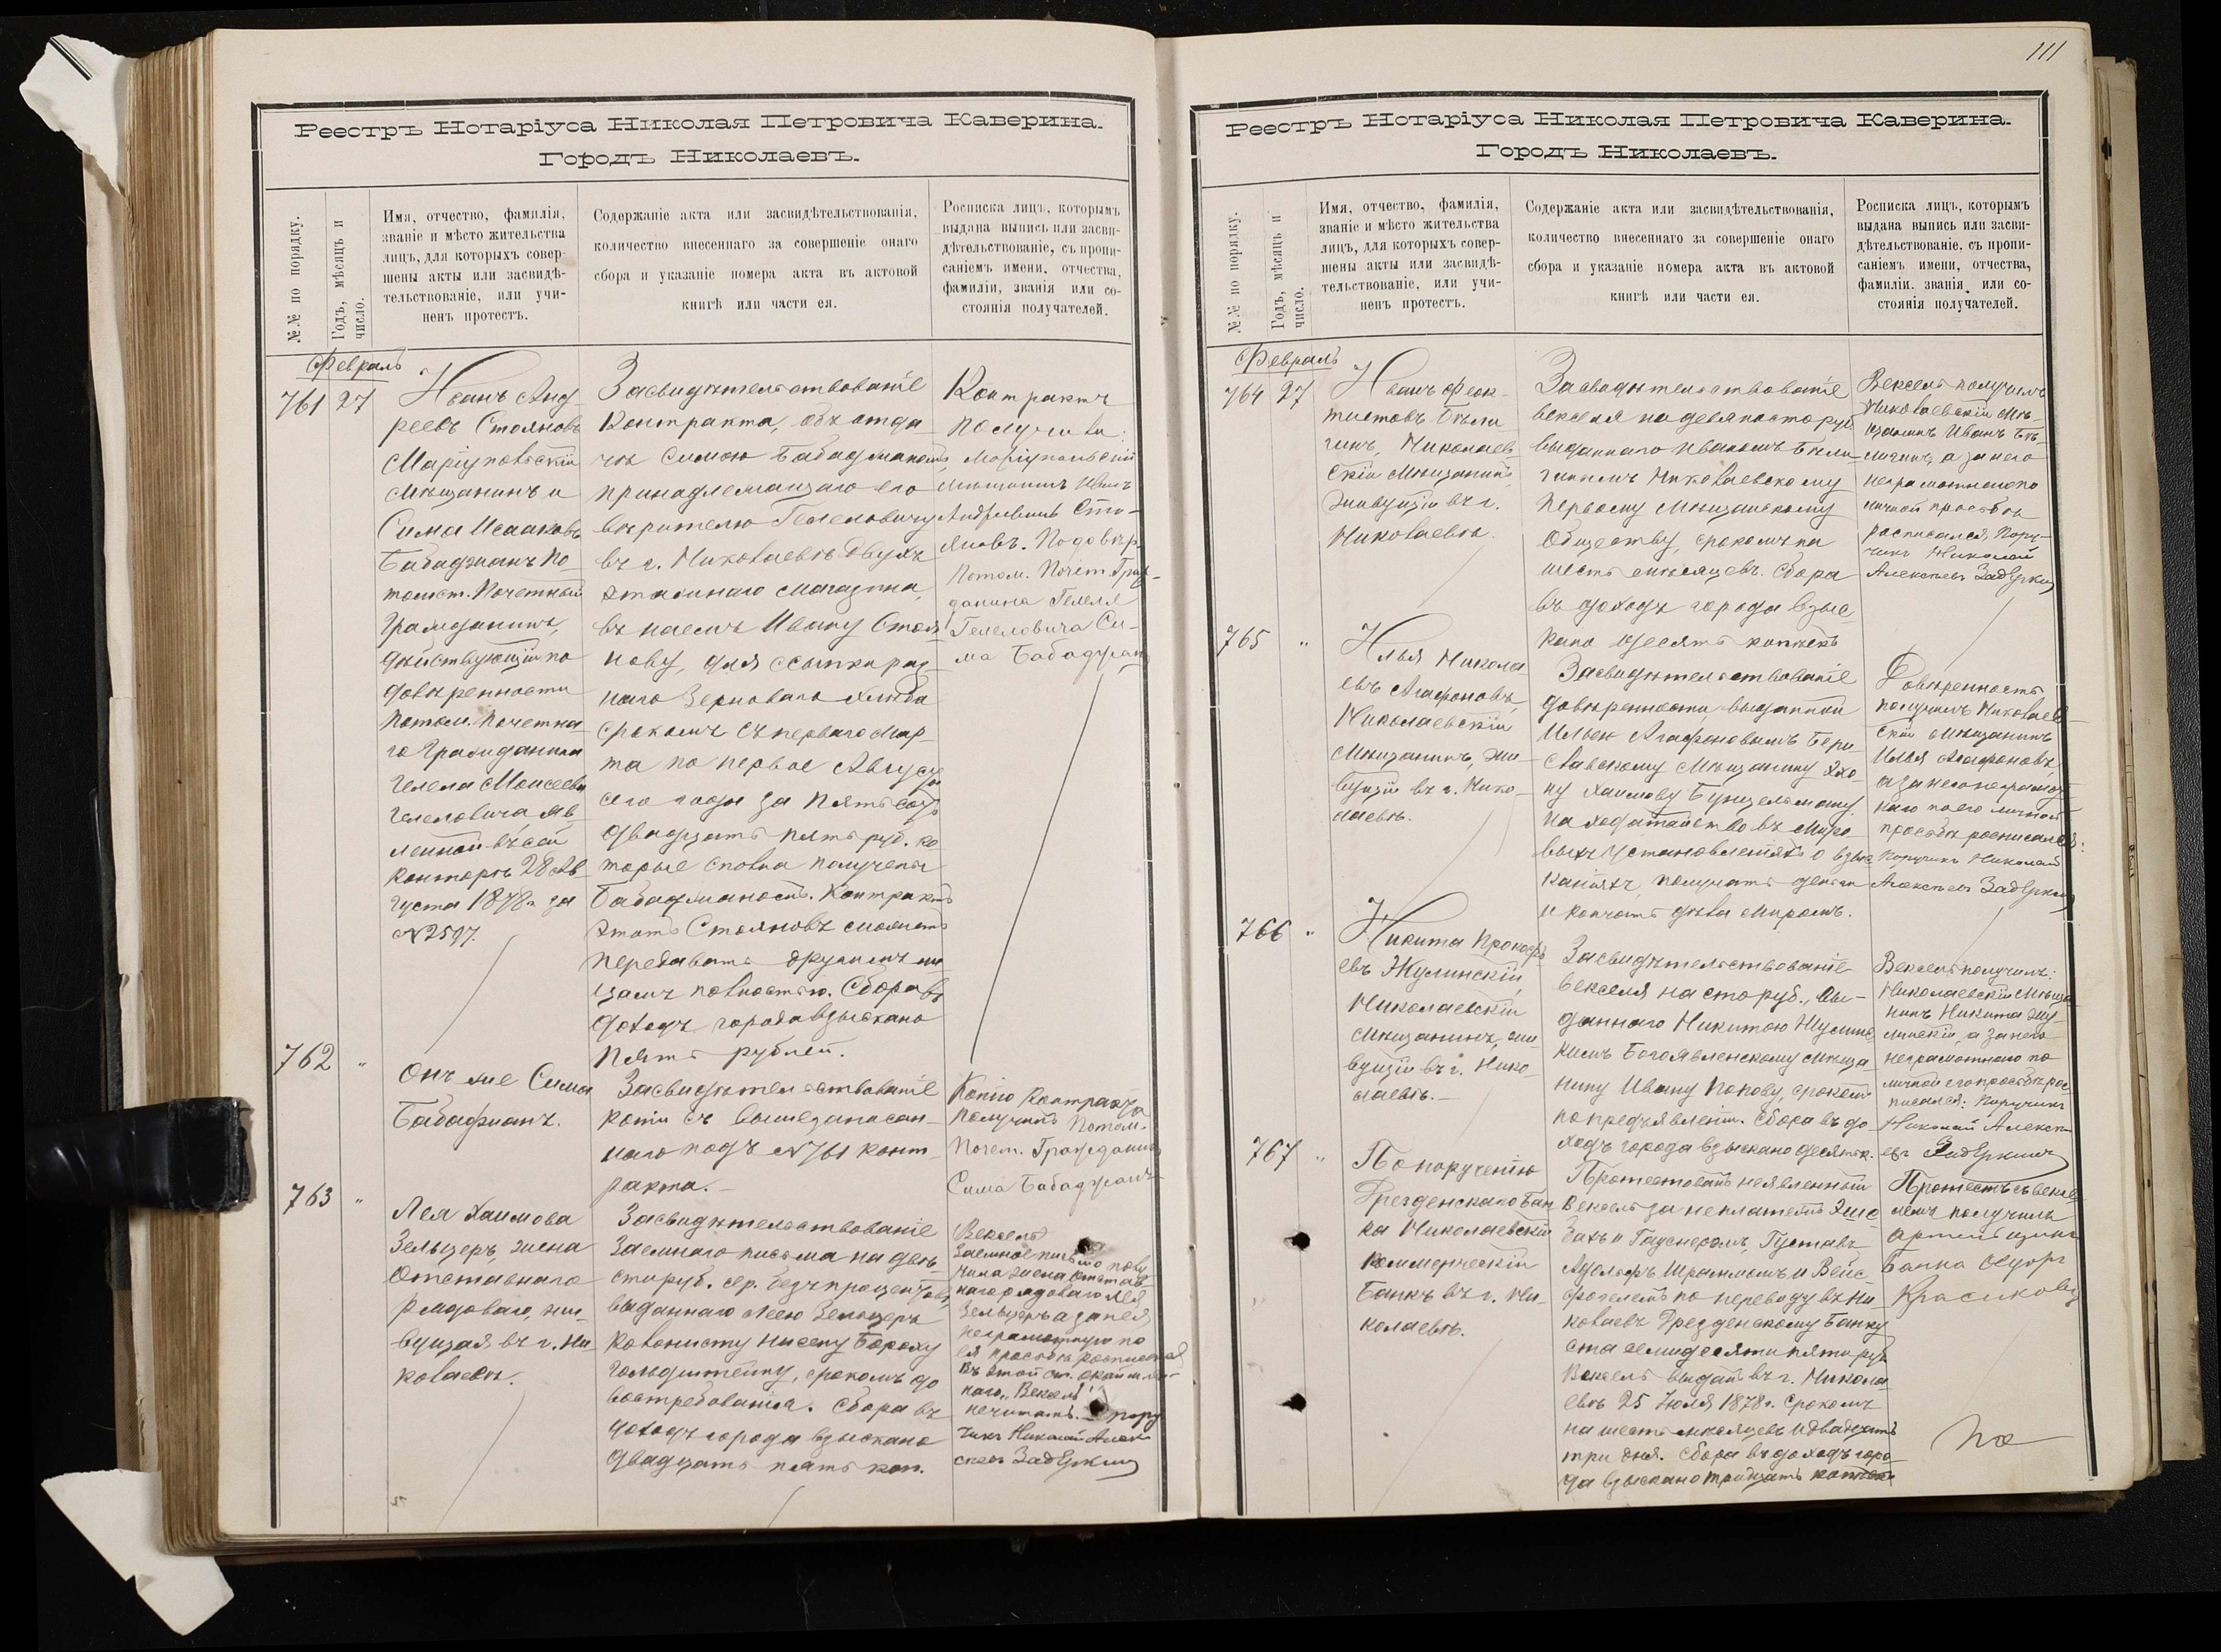 Реестръ Нотаріуса Николая Петровича Каверина.
Городъ Николаевъ.
№№ по порядку.
Годъ, мѣсяцъ и
число.
Имя, отчество, фамилія,
званіе и мѣсто жительства
лицъ, для которыхъ совер-
шены акты или засвидѣ-
тельствованіе, или учи-
ненъ протестъ.
Содержаніе акта или засвидѣтельствованія,
количество внесеннаго за совершеніе онаго
сбора и указаніе номера акта въ актовой
книгѣ или части ея.
Росписка лицъ, которымъ
выдана выпись или засви-
дѣтельствованіе, съ пропи-
саніемъ имени, отчества,
фамиліи, званія или со-
стоянія получателей.
Февраль
761 27
Иванъ Анд
реевъ Стояновъ
Маріупольскій
Мѣщанинъ и
Сима Исааковъ
Бабаджанъ По-
томст. Почетный
Гражданинъ,
дѣйствующій по
довѣренности
Потом. Почетна
го Гражданина
Гелела Моисеева
Гелеловича, яв-
ленной въ сей
Конторѣ 28 Ав-
густа 1878 г. за
№ 2597.
Засвидѣтельствованіе
Контракта, объ отда
чѣ Симою Бабаджаномъ,
принадлежащаго его
вѣрителю Гелеловичу
въ г. Николаевѣ двухъ
этажнаго магазина,
въ наемъ Ивану Стоя
нову, для ссыпки раз
наго Зерноваго хлѣба
срокомъ съ перваго Мар-
та по первое Августа
сего года за пятьсотъ
двадцать пять руб. ко
торые сполна получены
Бабаджаномъ. Контрактъ
этотъ Стояновъ можетъ
передавать другимъ ли
цамъ полностью. Сбора въ
доходъ города взыскано
пять рублей.
Контрактъ
получили:
Маріупольскій
Мѣщанинъ Иванъ
Андреевичъ Сто-
яновъ. По довѣр.
Потом. Почет. Граж-
данина Гелеля
Гелеловича Си-
ма Бабаджанъ
762 "
Онъ же Сима
Бабаджанъ.
Засвидѣтельствованіе
копіи съ вышезаписан-
наго подъ № 761 конт
ракта.
Копію Контракта
получилъ Потом.
Почет. Гражданинъ
Сима Бабаджанъ
763 "
Лея Хаимова
Зельцеръ, жена
Отставнаго
рядоваго, жи-
вущая въ г. Ни
колаевѣ.
Засвидѣтельствованіе
Заемнаго письма на двѣ-
сти руб. сер. безъ процентовъ,
выданнаго Леею Зельцеръ
Колонисту Нисену Бороху
Гольдштейну, срокомъ до
востребованія. Сбора въ
доходъ города взыскано
двадцать пять коп.
Вексель
Заемное письмо полу
чила жена Отстав
наго рядоваго Лея
Зельцеръ а за нея
неграмотную по
ея просьбѣ росписался
Въ этой ст.
наго „Вексель“
нечитать. Пору
чикъ Николай Алек
сѣевъ Задеркинъ
111
Реестръ Нотаріуса Николая Петровича Каверина.
Городъ Николаевъ.
№№ по порядку.
Годъ, мѣсяцъ и
число.
Имя, отчество, фамилія,
званіе и мѣсто жительства
лицъ, для которыхъ совер-
шены акты или засвидѣ-
тельствованіе, или учи-
ненъ протестъ.
Содержаніе акта или засвидѣтельствованія,
количество внесеннаго за совершеніе онаго
сбора и указаніе номера акта въ актовой
книгѣ или части ея.
Росписка лицъ, которымъ
выдана выпись или засви-
дѣтельствованіе, съ пропи-
саніемъ имени, отчества,
фамиліи, званія или со-
стоянія получателей.
Февраль
764 27
Иванъ Феок-
тистовъ Бѣли
гинъ, Николаев
скій Мѣщанинъ
живущій въ г.
Николаевѣ.
Засвидѣтельствованіе
векселя на девяносто руб
выданнаго Иваномъ Бѣли-
гинымъ Николаевскому
Первому Мѣщанскому
Обществу, срокомъ на
шесть мѣсяцевъ. Сбора
въ доходъ города взыс
кано десять копѣекъ
Вексель получилъ
Николаевскій Мѣ-
щанинъ Иванъ Бѣ-
лигинъ, а за него
неграмотнаго по
личной просьбѣ
росписался, Пору-
чикъ Николай
Алексѣевъ Задеркинъ
765 "
Илья Никола
евъ Агафоновъ,
Николаевскій
Мѣщанинъ, жи-
вущій въ г. Нико-
лаевѣ.
Засвидѣтельствованіе
довѣренности, выданной
Ильею Агафоновымъ Бери-
славскому Мѣщанину Хаю-
ну Хаимову Бунцельману
на ходатайство въ Миро
выхъ Установленіяхъ о взыс
каніяхъ, получать деньги
и кончать дѣла миромъ.
Довѣренность
получилъ Николаев-
скій Мѣщанинъ
Илья Агафоновъ,
а за него неграмот
наго по его личной
просьбѣ росписался:
Поручикъ Николай
Алексѣевъ Задеркинъ
766 "
Никита Прокофь
евъ Жулинскій,
Николаевскій
мѣщанинъ, жи-
вущій въ г. Нико-
лаевѣ.
Засвидѣтельствованіе
векселя на сто руб., вы-
даннаго Никитою Жулинс
кимъ Богоявленскому Мѣща
нину Ивану Попову, срокомъ
по предъявленіи. Сбора въ до-
ходъ города взыскано десять к.
Вексель получилъ:
Николаевскій Мѣща-
нинъ Никита Жу-
линскій, а за него
неграмотнаго по
личной его просьбѣ рос
писался: Поручикъ
Николай Алексѣ-
евъ Задеркинъ
767 "
По порученію
Дрезденскаго Бан
ка Николаевскій
Коммерческій
Банкъ въ г. Ни-
колаевѣ.
Протестованъ неявленный
Вексель за неплатежъ Эше
бахъ и Гауснеромъ, Густавъ
Адольфъ Шраммомъ и Вейс-
фогелемъ по переводу въ Ни-
колаевъ Дрезденскому Банку
ста семидесяти пяти руб
Вексель выданъ въ г. Никола
евѣ 25 Іюля 1878 г. Срокомъ
на шесть мѣсяцевъ и двадцать
три дня. Сбора въ доходъ горо
да взыскано тридцать копѣекъ
Протестъ съ вексе
лемъ получилъ
артельщикъ
Банка Ѳедоръ
Красиковъ